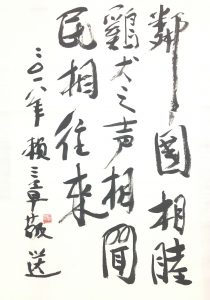 鄰国相睦
鷄犬之声相聞
民相往来
二〇一八年 賴三章敬送